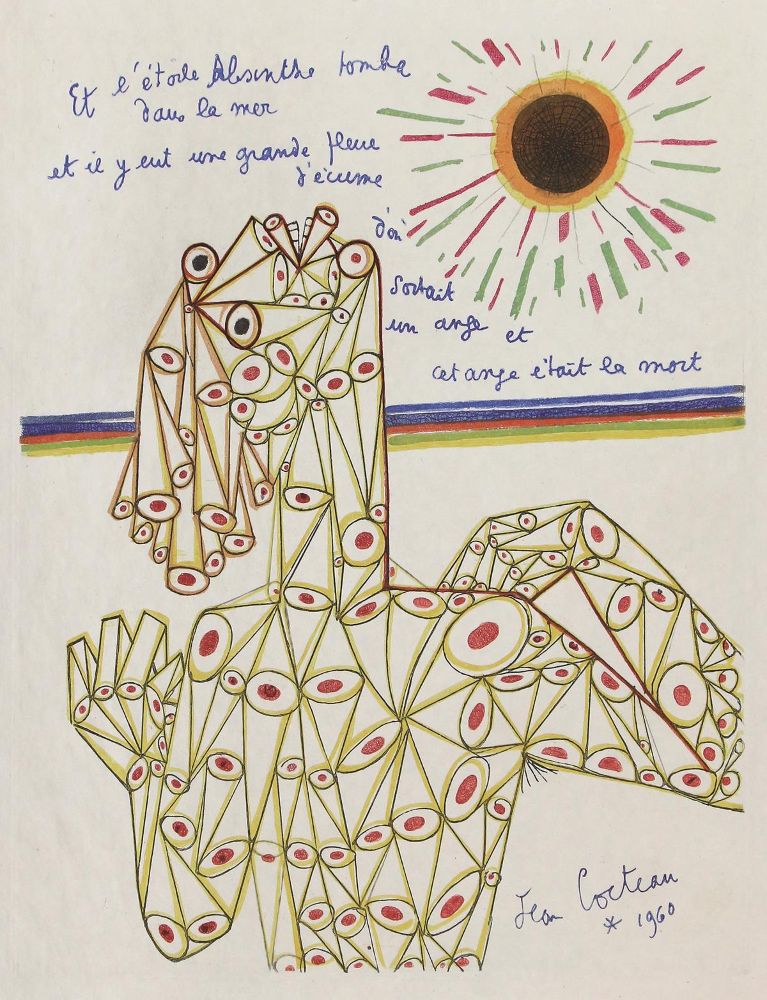 Et l'étoile Absinthe tomba
dans la mer
et il y eut une grande fleur
d'écume
d'où
Sortait
un ange et
cet ange était la mort
Jean Cocteau
* 1960